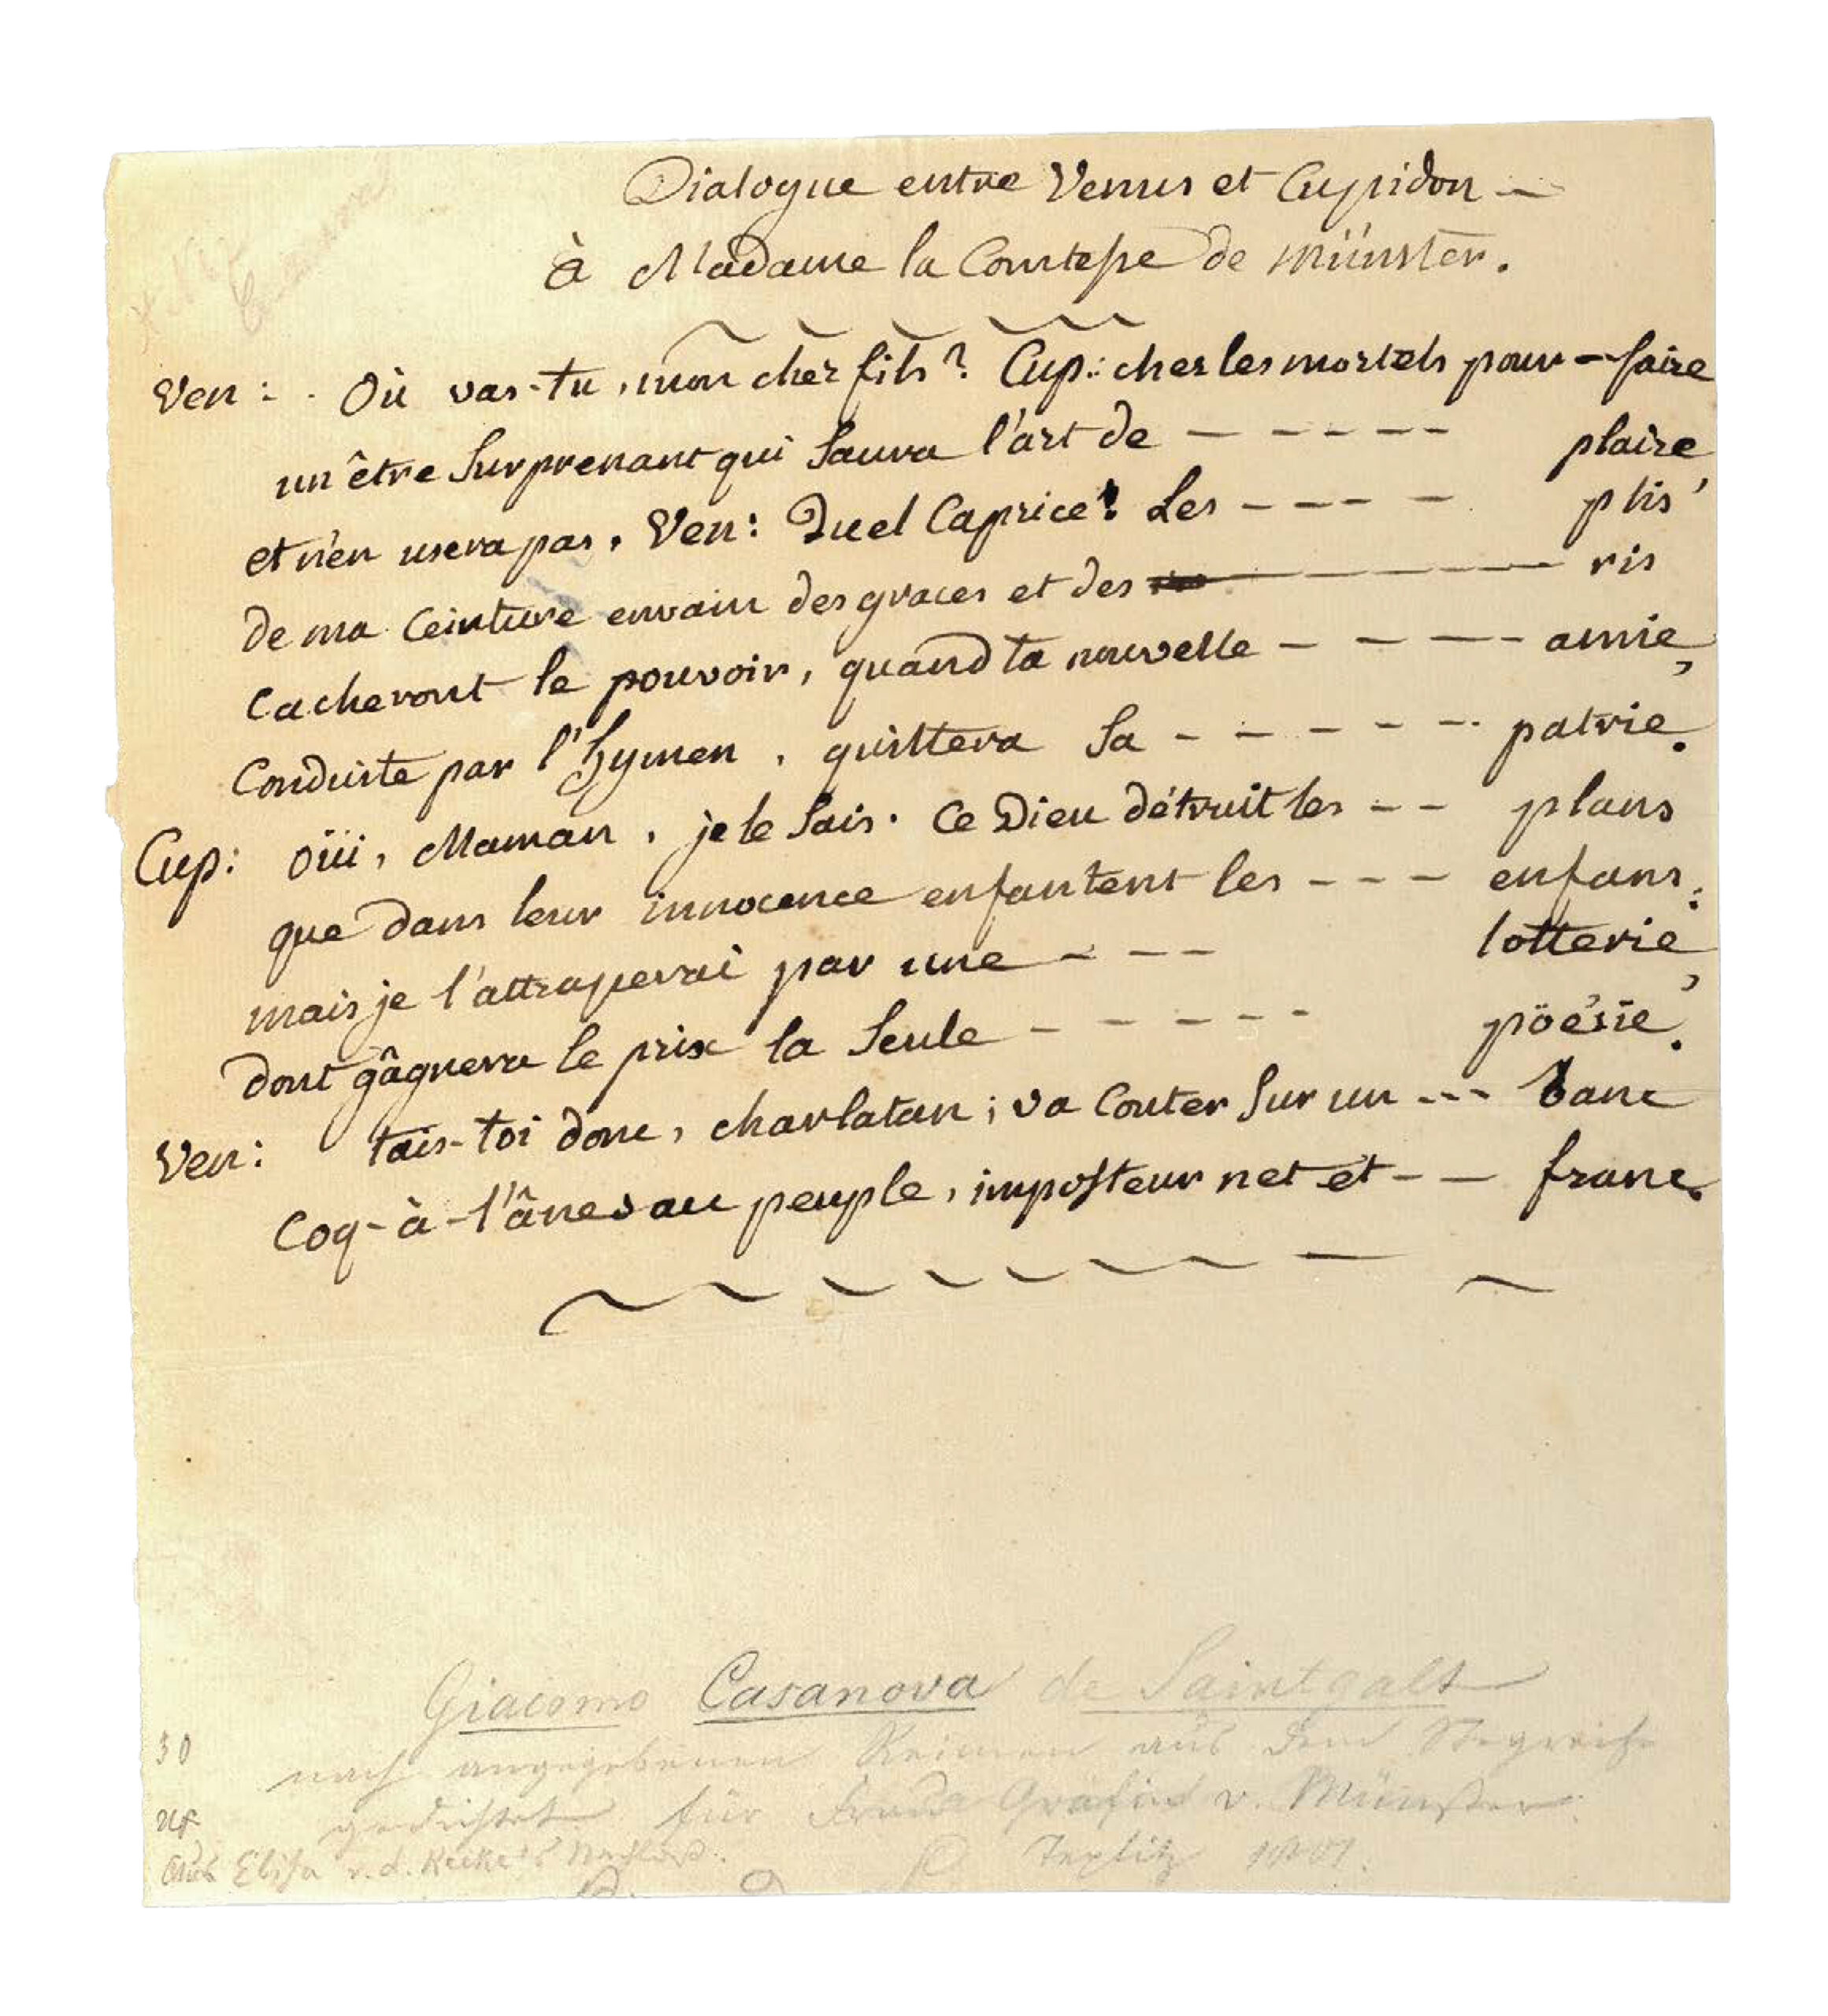 Dialogue entre Venus et Cupidon —
à Madame la Comtesse de Münster.
Ven : . Où vas-tu, mon cher fils? Cup: chez les mortels pour - faire
un être surprenant qui saura l'art de - - - - - - plaire
et n'en usera pas. Ven: Quel caprice! Les - - - - - plis
de ma ceinture envain des graces et des - - - - ris
cacheront le pouvoir, quand ta nouvelle - - - - amie,
conduite par l'hymen, quittera sa - - - - - - patrie.
Cup: oüi, Maman, je le sais. Ce Dieu détruit les - - plans
que dans leur innocence enfantent les - - - enfans:
mais je l'attraperai par une - - - lotterie,
dont gâgnera le prix la seule - - - - - - pöésie.
Ven: tais-toi donc, charlatan; va conter sur un - - - banc
Coq-à-l'ânes au peuple, imposteur net et - - franc.
Giacomo Casanova de Saintgalt
30 nach angegebenen Reimen aus dem Stegreife
gedichtet für Frau Gräfin v. Münster.
Aus Elisa v. d. Recke's Nachlaß. Teplitz 1801.